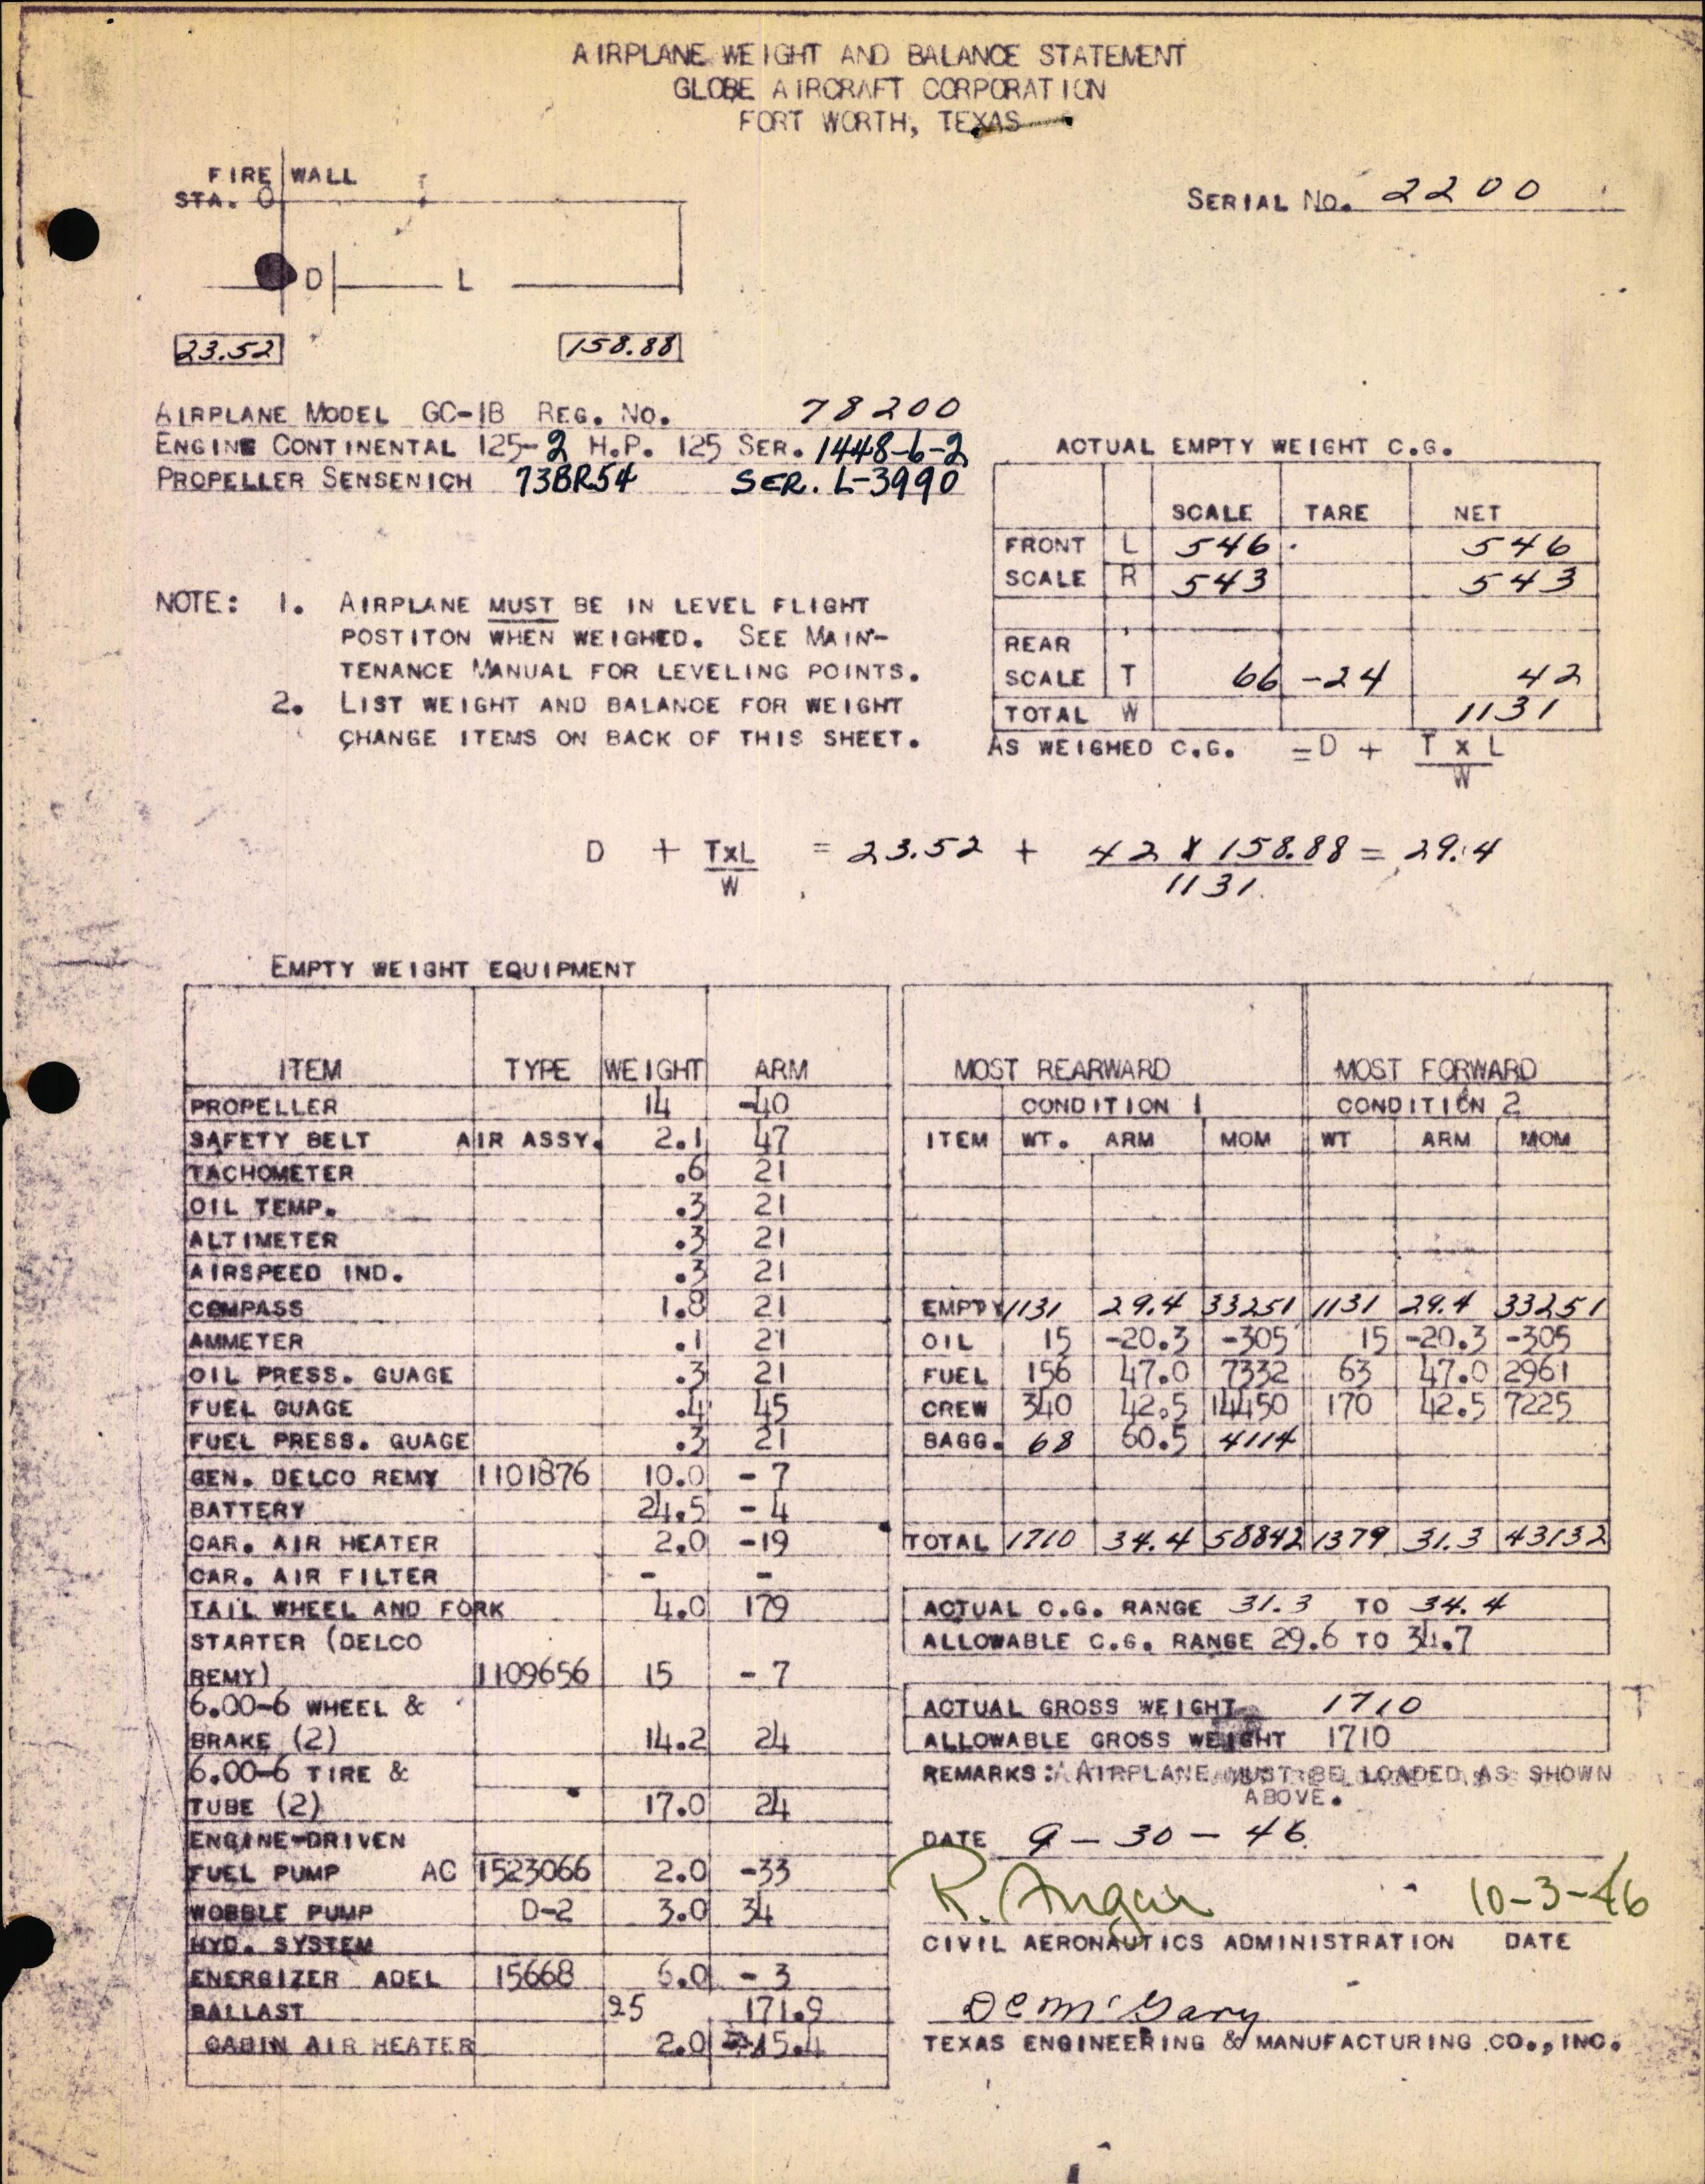 AIRPLANE WEIGHT AND BALANCE STATEMENT
GLOBE AIRCRAFT CORPORATION
FORT WORTH, TEXAS
FIRE WALL
STA. 0
SERIAL NO. 2200
D L
23.52 158.88
AIRPLANE MODEL GC-1B REG. NO. 78200
ENGINE CONTINENTAL 125-2 H.P. 125 SER. 1448-6-2
PROPELLER SENSENICH 73BR54 SER. L-3990
ACTUAL EMPTY WEIGHT C.G.
SCALE TARE NET
FRONT L 546 546
SCALE R 543 543
REAR
SCALE T 66 -24 42
TOTAL W 1131
AS WEIGHED C.G. =D + T x L
W
NOTE: 1. AIRPLANE MUST BE IN LEVEL FLIGHT
POSTITON WHEN WEIGHED. SEE MAIN-
TENANCE MANUAL FOR LEVELING POINTS.
2. LIST WEIGHT AND BALANCE FOR WEIGHT
CHANGE ITEMS ON BACK OF THIS SHEET.
D + TxL = 23.52 + 42 x 158.88 = 29.4
W 1131
EMPTY WEIGHT EQUIPMENT
ITEM TYPE WEIGHT ARM
PROPELLER 14 -40
SAFETY BELT AIR ASSY. 2.1 47
TACHOMETER .6 21
OIL TEMP. .3 21
ALTIMETER .3 21
AIRSPEED IND. .3 21
COMPASS 1.8 21
AMMETER .1 21
OIL PRESS. GUAGE .3 21
FUEL GUAGE .4 45
FUEL PRESS. GUAGE .3 21
GEN. DELCO REMY 1101876 10.0 - 7
BATTERY 24.5 - 4
CAR. AIR HEATER 2.0 -19
CAR. AIR FILTER - -
TAIL WHEEL AND FORK 4.0 179
STARTER (DELCO
REMY) 1109656 15 - 7
6.00-6 WHEEL &
BRAKE (2) 14.2 24
6.00-6 TIRE &
TUBE (2) 17.0 24
ENGINE-DRIVEN
FUEL PUMP AC 1523066 2.0 -33
WOBBLE PUMP D-2 3.0 34
HYD. SYSTEM
ENERGIZER ADEL 15668 6.0 - 3
BALLAST 25 171.9
CABIN AIR HEATER 2.0 15.4
MOST REARWARD MOST FORWARD
CONDITION 1 CONDITION 2
ITEM WT. ARM MOM WT ARM MOM
EMPTY 1131 29.4 33251 1131 29.4 33251
OIL 15 -20.3 -305 15 -20.3 -305
FUEL 156 47.0 7332 63 47.0 2961
CREW 340 42.5 14450 170 42.5 7225
BAGG. 68 60.5 4114
TOTAL 1710 34.4 58842 1379 31.3 43132
ACTUAL C.G. RANGE 31.3 TO 34.4
ALLOWABLE C.G. RANGE 29.6 TO 34.7
ACTUAL GROSS WEIGHT 1710
ALLOWABLE GROSS WEIGHT 1710
REMARKS: AIRPLANE MUST BE LOADED AS SHOWN
ABOVE.
DATE 9-30-46
R. Angar 10-3-46
CIVIL AERONAUTICS ADMINISTRATION DATE
DC McGary
TEXAS ENGINEERING & MANUFACTURING CO., INC.